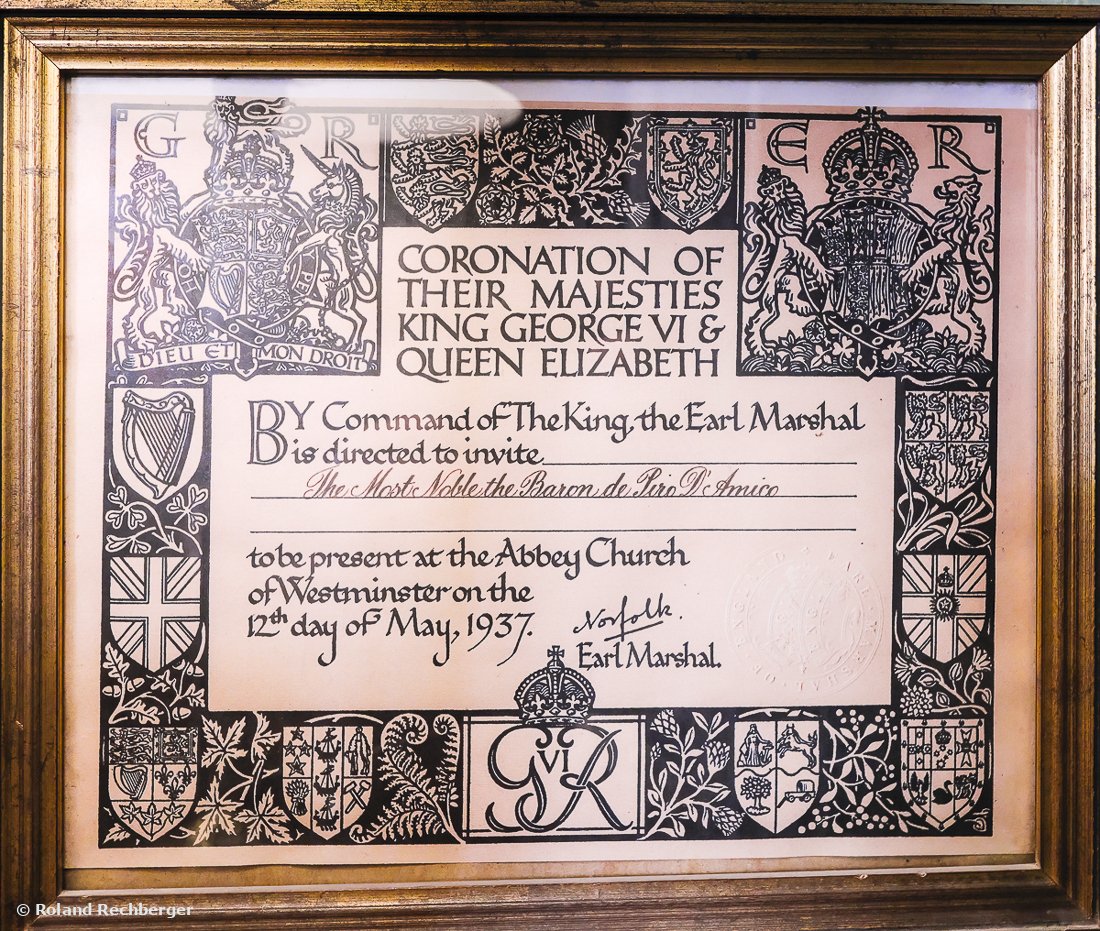 G R
E R
CORONATION OF
THEIR MAJESTIES
KING GEORGE VI &
QUEEN ELIZABETH
DIEU ET MON DROIT
BY Command of The King, the Earl Marshal
is directed to invite
The Most Noble the Baron de Piro D'Amico
to be present at the Abbey Church
of Westminster on the
12th day of May, 1937.
Norfolk.
Earl Marshal.
G VI R
© Roland Rechberger